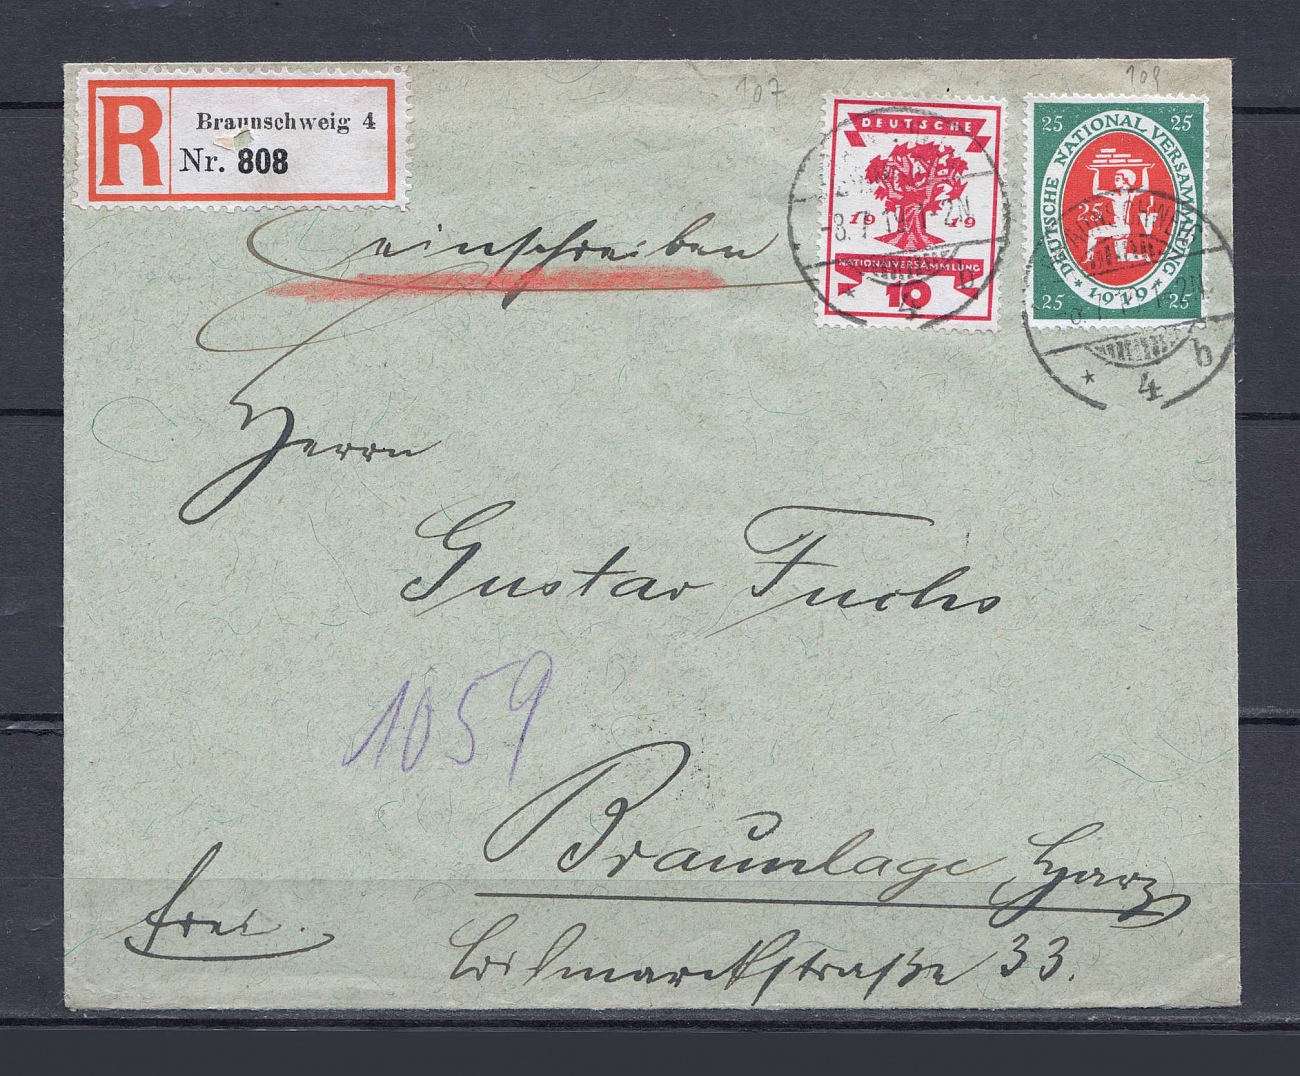 R Braunschweig 4
Nr. 808
107
109
DEUTSCHE
19 19
NATIONALVERSAMMLUNG
10
25 25
DEUTSCHE NATIONALVERSAMMLUNG
25
* 1919 *
25 25
* 4 b
* 4 b
Einschreiben
Herrn
Gustav Fuchs
1059
Braunlage Harz
frei.
Bismarckstraße 33.